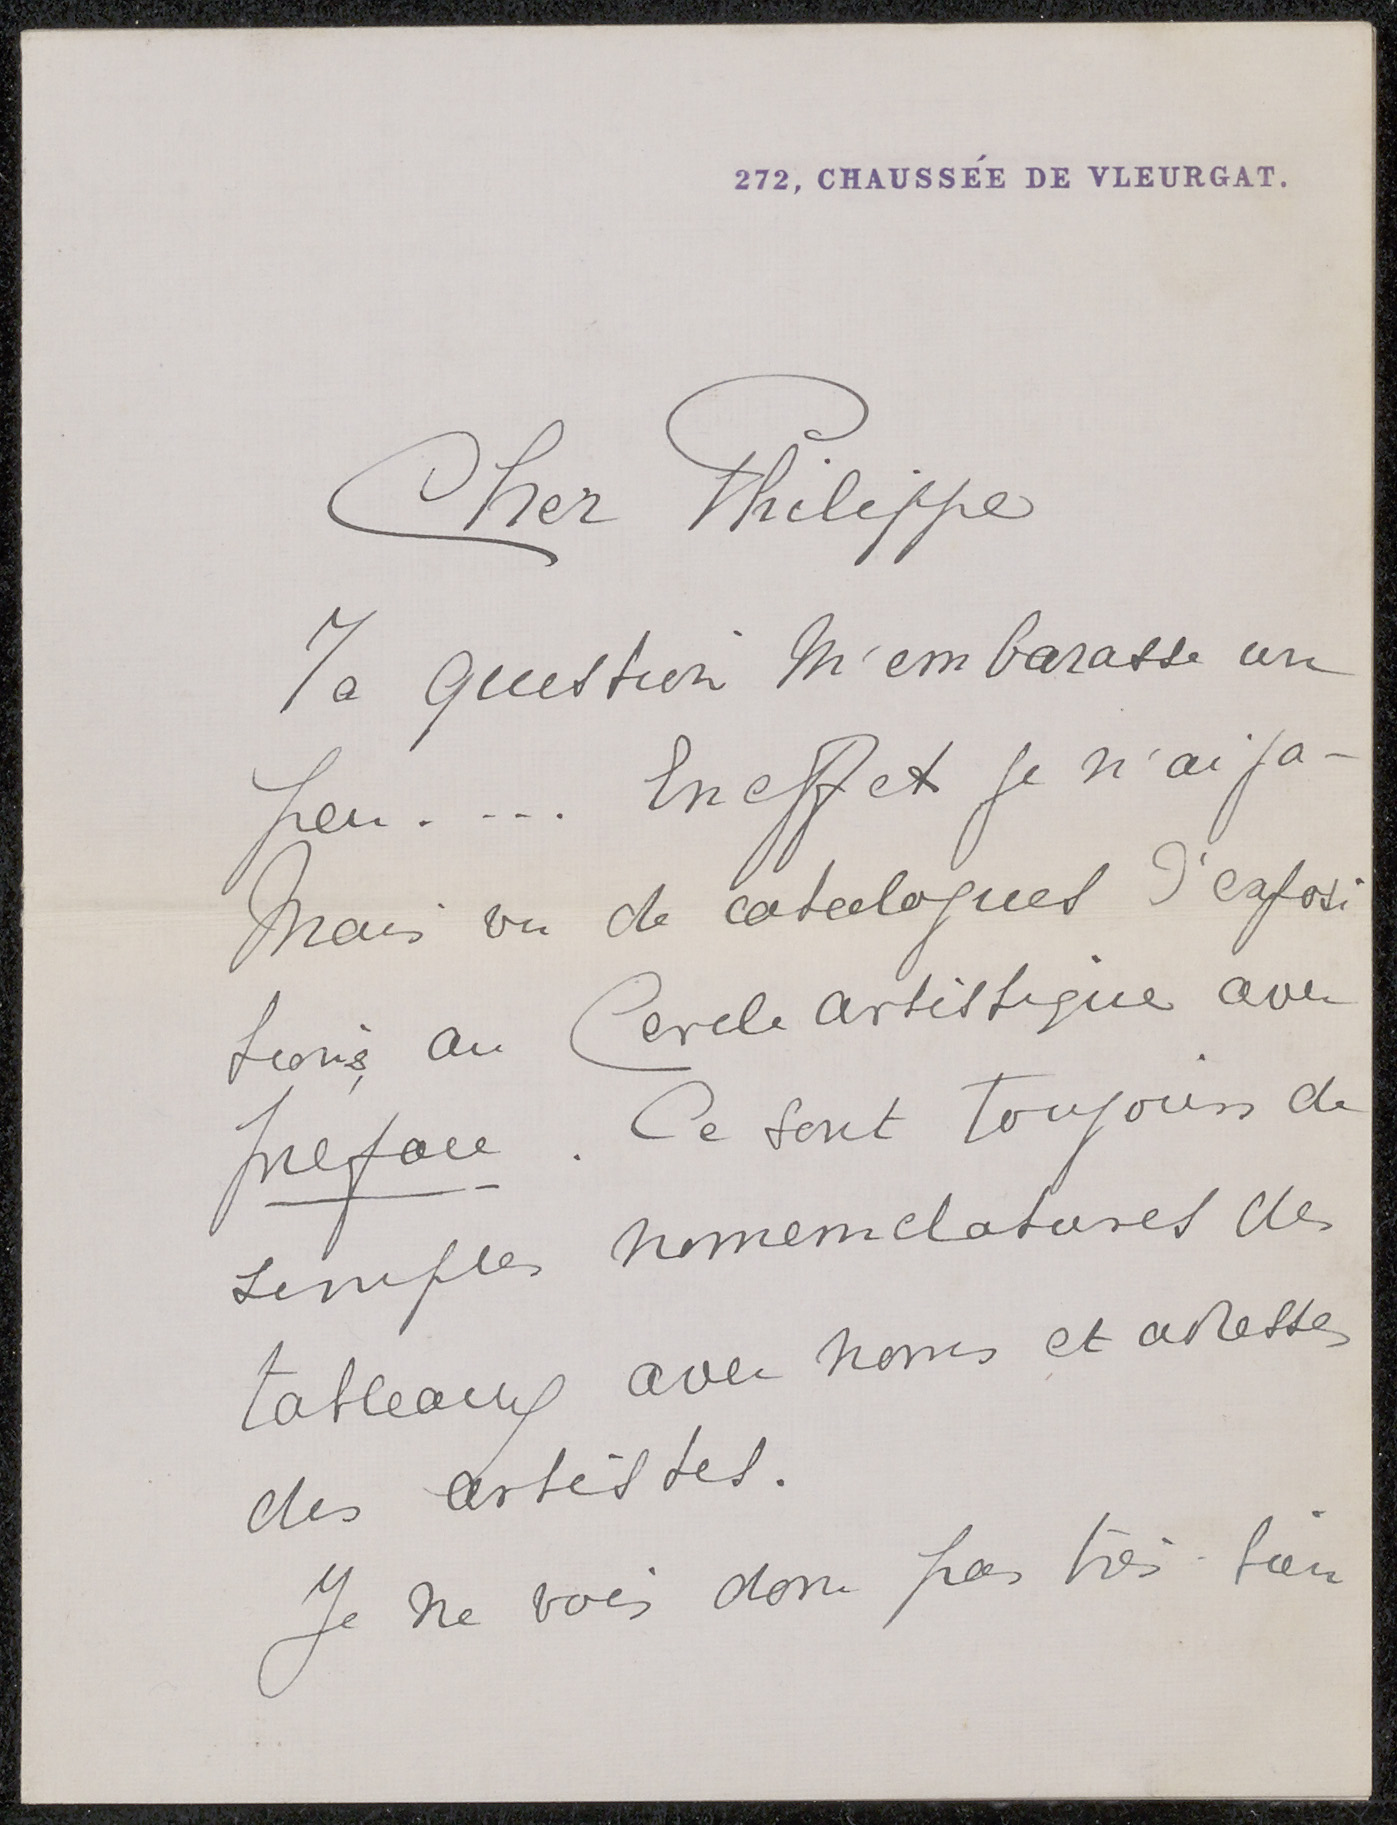 272, CHAUSSÉE DE VLEURGAT.
Cher Philippe
Ta question m'embarasse un
peu. ... En effet je n'ai ja-
mais vu de catalogues d'exposi
tions, au Cercle artistique avec
préface. Ce sont toujours de
simples nomemclatures des
tableaux avec noms et adresses
des artistes.
Je ne vois donc pas très bien